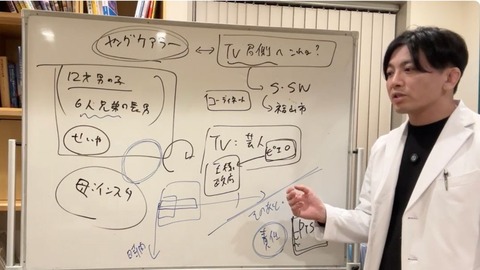 ヤングケアラー
TV局側へ これは?
12才男の子
6人兄弟の長男
せいや
S・SW
コーディネート
福山市
TV:芸人
ピエロ
王様
母:インスタ
時間
そのあと、
責任